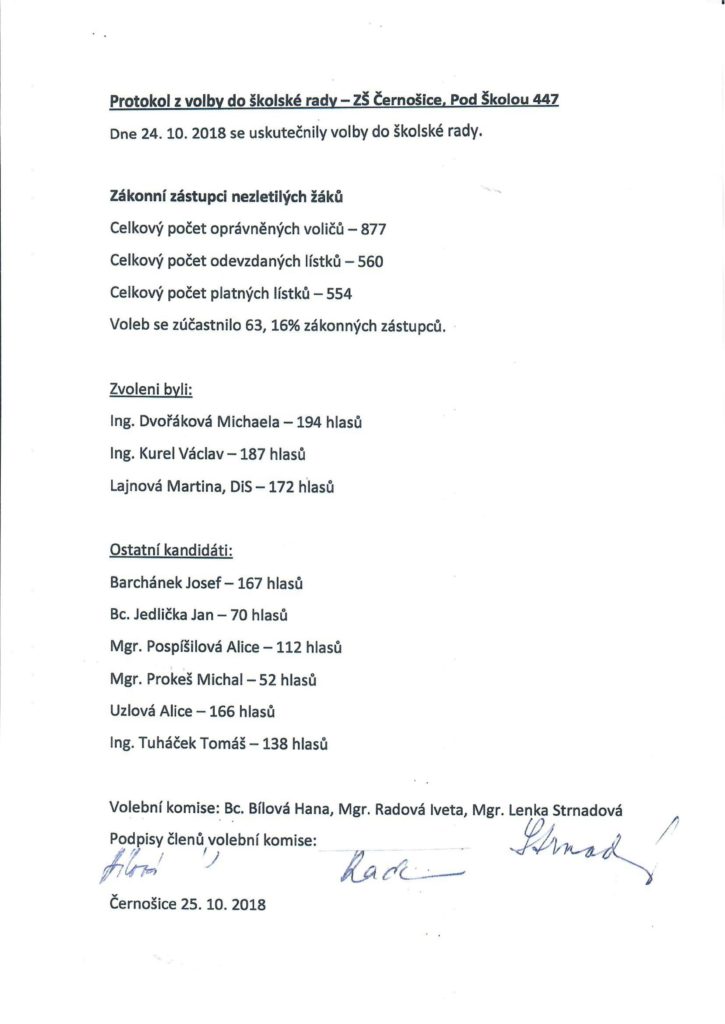 Protokol z volby do školské rady – ZŠ Černošice, Pod Školou 447
Dne 24. 10. 2018 se uskutečnily volby do školské rady.
Zákonní zástupci nezletilých žáků
Celkový počet oprávněných voličů – 877
Celkový počet odevzdaných lístků – 560
Celkový počet platných lístků – 554
Voleb se zúčastnilo 63, 16% zákonných zástupců.
Zvoleni byli:
Ing. Dvořáková Michaela – 194 hlasů
Ing. Kurel Václav – 187 hlasů
Lajnová Martina, DiS – 172 hlasů
Ostatní kandidáti:
Barchánek Josef – 167 hlasů
Bc. Jedlička Jan – 70 hlasů
Mgr. Pospíšilová Alice – 112 hlasů
Mgr. Prokeš Michal – 52 hlasů
Uzlová Alice – 166 hlasů
Ing. Tuháček Tomáš – 138 hlasů
Volební komise: Bc. Bílová Hana, Mgr. Radová Iveta, Mgr. Lenka Strnadová
Podpisy členů volební komise:
Strnad
Černošice 25. 10. 2018